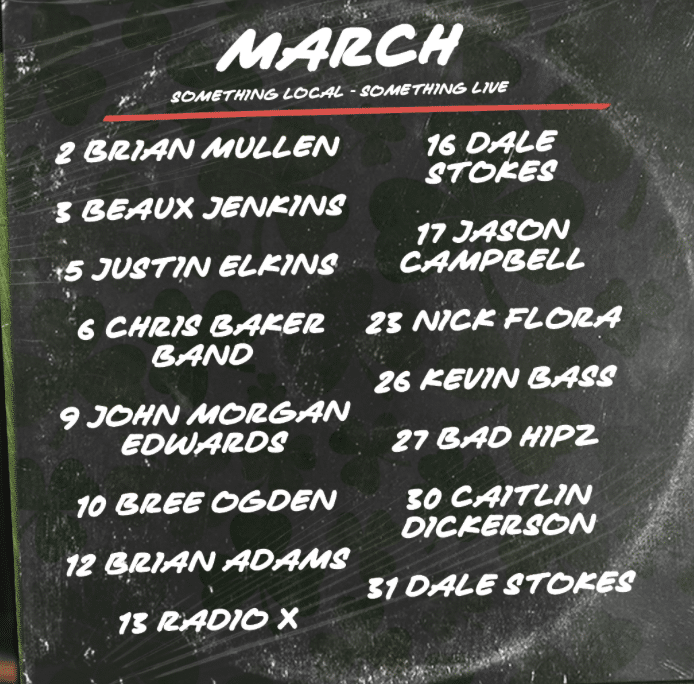 MARCH
SOMETHING LOCAL - SOMETHING LIVE
2 BRIAN MULLEN
3 BEAUX JENKINS
5 JUSTIN ELKINS
6 CHRIS BAKER
BAND
9 JOHN MORGAN
EDWARDS
10 BREE OGDEN
12 BRIAN ADAMS
13 RADIO X
16 DALE
STOKES
17 JASON
CAMPBELL
23 NICK FLORA
26 KEVIN BASS
27 BAD HIPZ
30 CAITLIN
DICKERSON
31 DALE STOKES